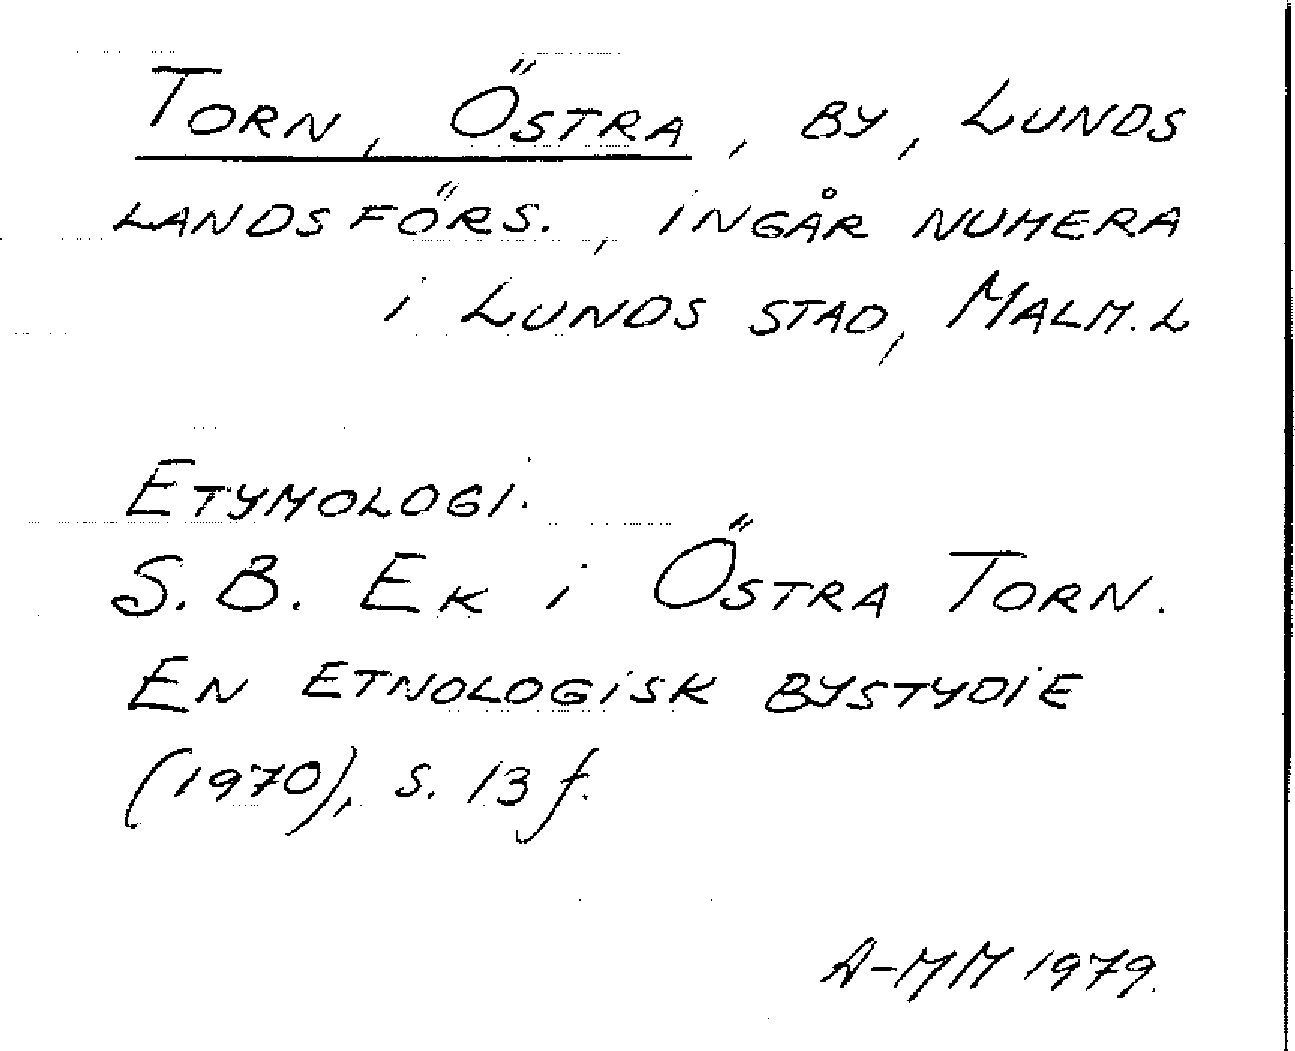 TORN, ÖSTRA, BY, LUNDS
LANDSFÖRS., INGÅR NUMERA
I LUNDS STAD, MALM. L
ETYMOLOGI.
S. B. EK I ÖSTRA TORN.
EN ETNOLOGISK BYSTYDIE
(1970), S. 13 f.
A-MM 1979.